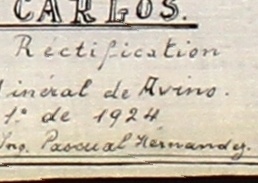 CARLOS.
Rectification
ineral de Avino.
1º de 1924
Ing. Pascual Hernandez.